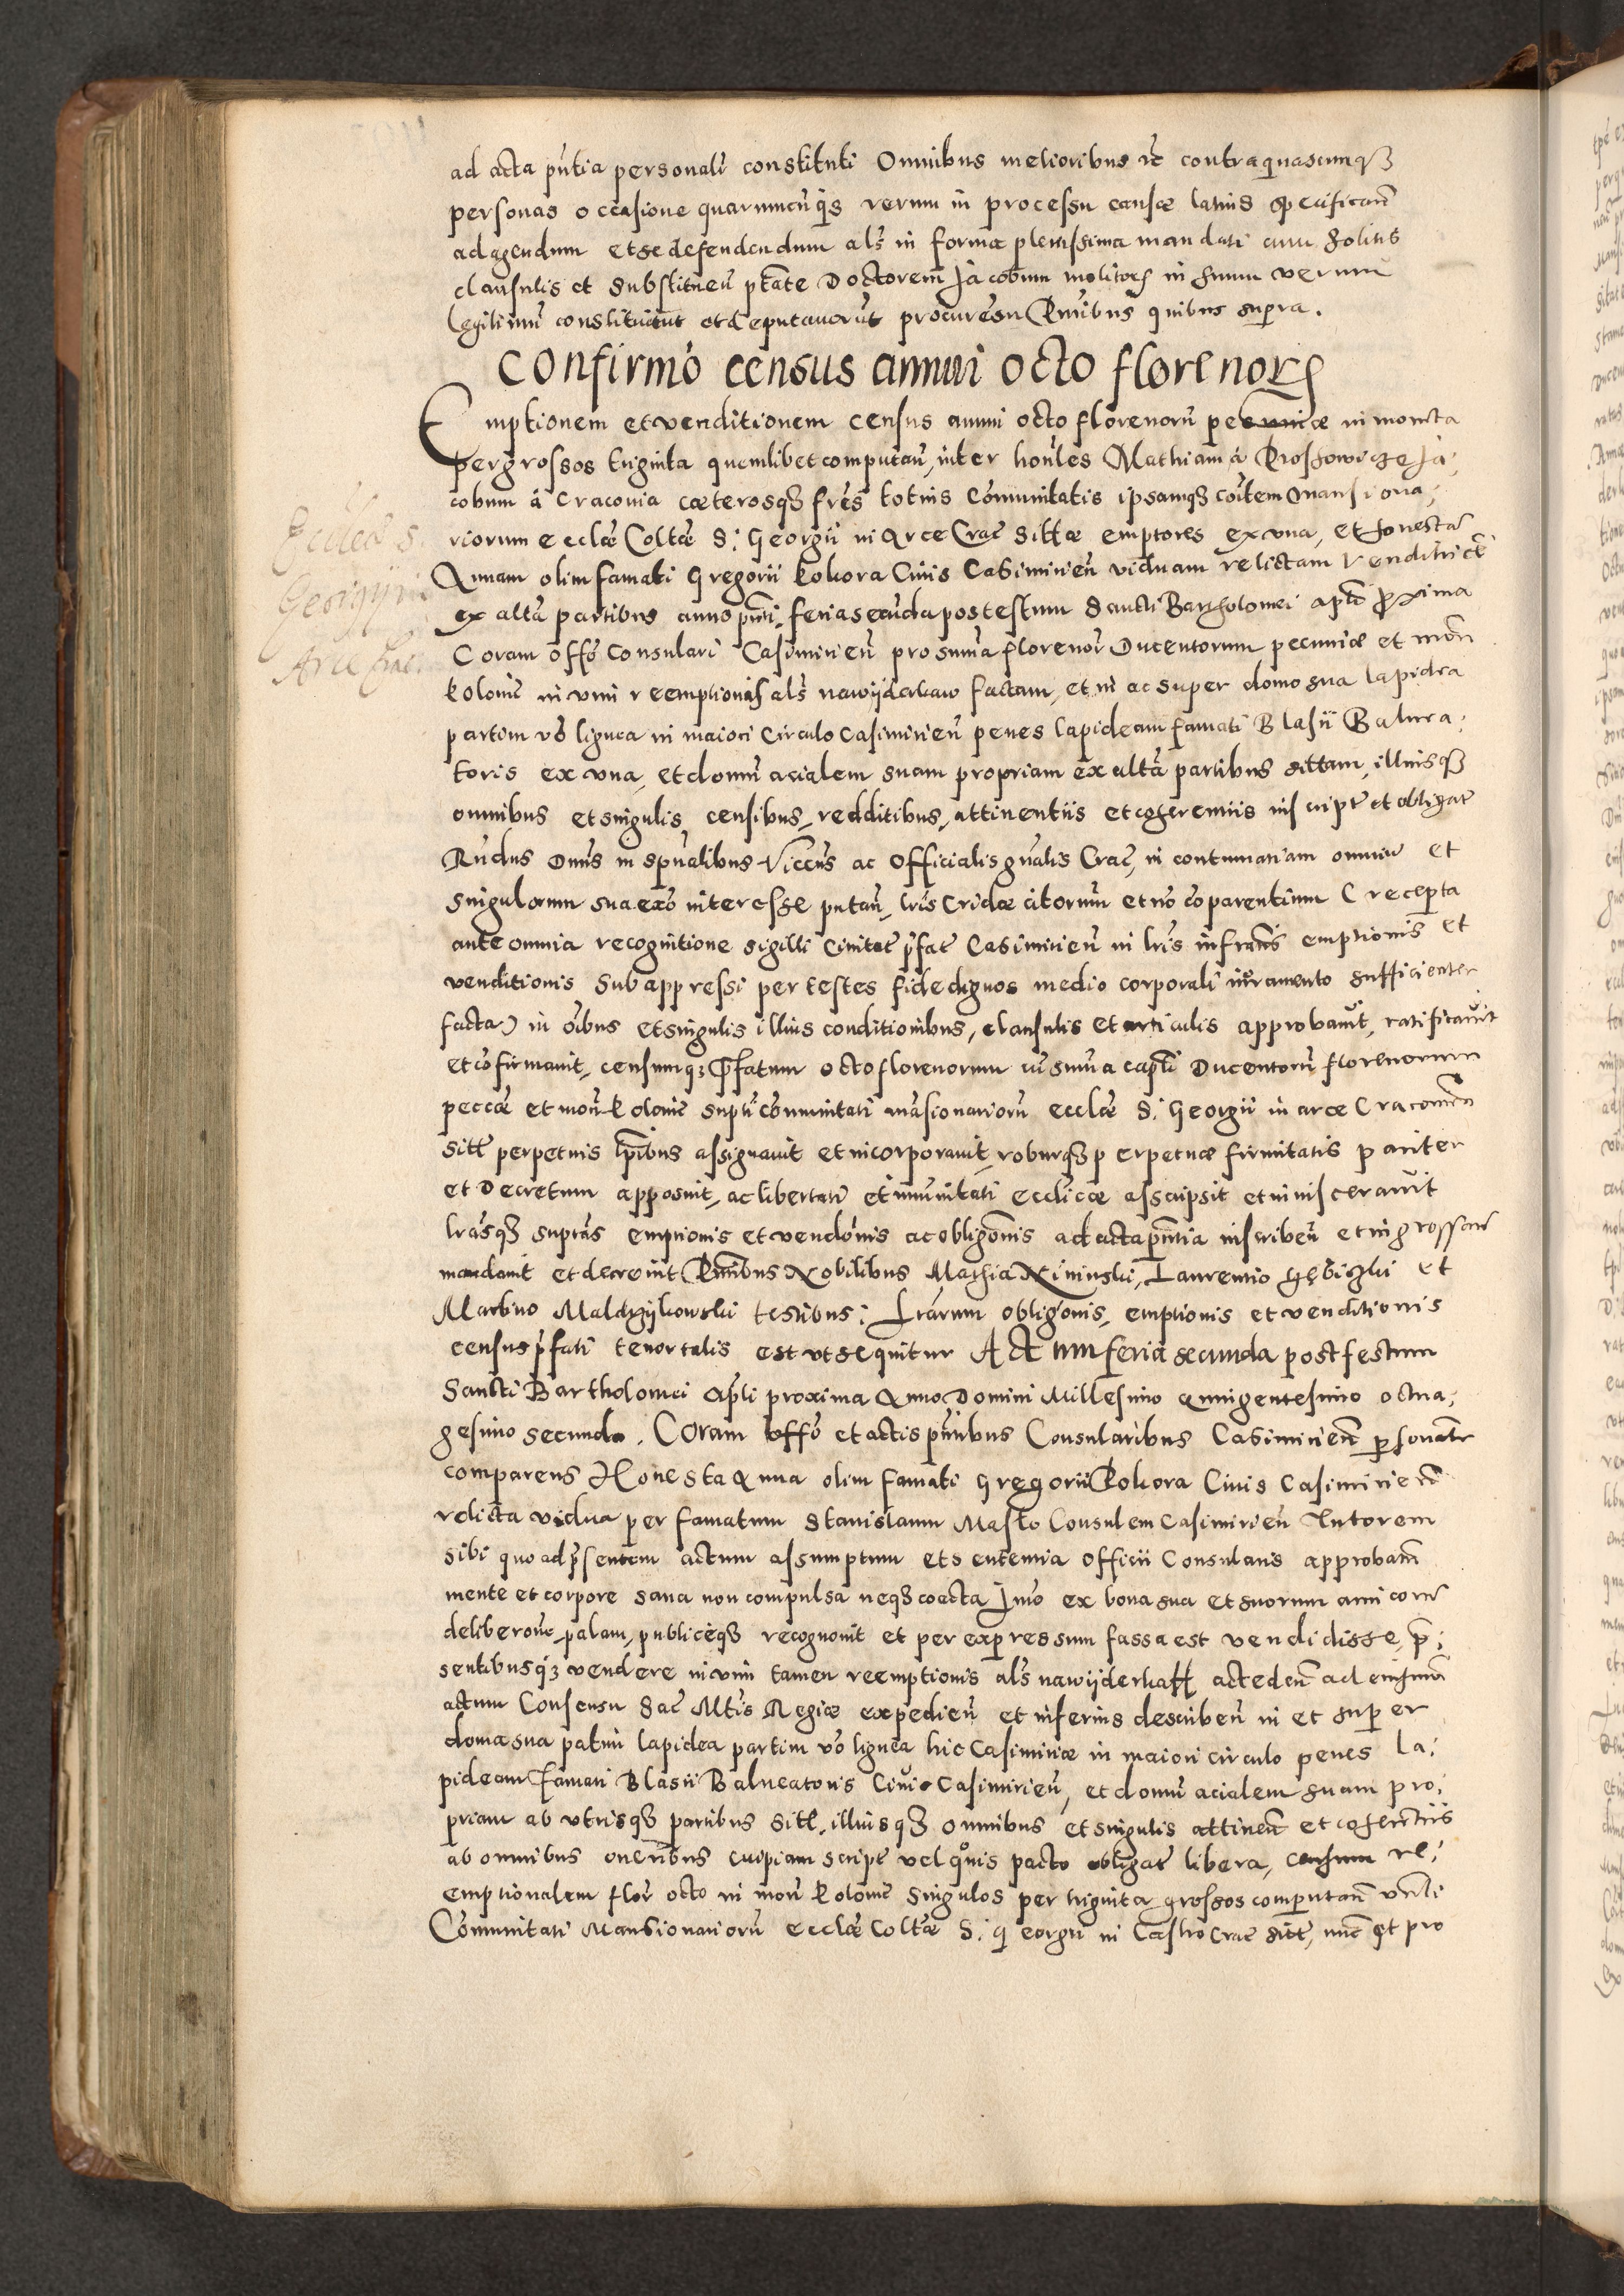 ad acta pñtia personalr̃ constituti Omnibus melioribus rc̃ contra quascunqȝ
personas occasione quarumcūqȝ rerum in processu causæ latius specificañ
ad agendum et se defendendum als̃ in forma plenissima mandati cum solitis
clausulis et substitueñ ptãte Doctorem Jacobum molitor in suum verum
legitimũ constituerũt et deputaverũt procurẽm Pñtibus quibus supra.
Confirmõ census annui octo florenorꝝ
Emptionem et venditionem census annui octo florenorũ pecuniæ in moneta
per grossos triginta quemlibet computañ, inter honr̃les Mathiam à Proszowicze Ja,
cobum à Cracovia cæterosqȝ fr̃es totius Cõmunitatis ipsamqȝ cõitem Mansiona,
riorum ecclæ Coltæ S. Georgii in Arce Crac̃ sittæ emptores ex una, et honestã
Annam olim famati Gregorii Kokora Civis Casimirieñ viduam relictam venditricẽ
ex altã partibus anno pñti, feria secunda post festum Sancti Bartholomei aptĩ proxima
Coram offõ Consulari Casimirieñ pro sum̃a florenorũ Ducentorum pecuniæ et moñ
Polonic̃ in vim reemptionis als̃ nawijderkaw factam, et in ac super domo sua lapidea
partim võ lignea in maiori circulo Casimirieñ penes lapideam famati Blasii Balnea,
toris ex una, et domũ acialem suam propriam ex altã partibus sittam, illiusqȝ
omnibus et singulis censibus, redditibus, attinentiis et cohærentiis inscript̃ et obligat̃
Rñdus Dñus in spũalibus Viccũs ac Officialis gñalis Crac̃, in contumatiam omniũ et
singulorum sua exõ interesse putañ, lr̃is Cridæ citorum et nõ cõparentium (recepta
ante omnia recognitione sigilli Civitat̃ pr̃fat̃ Casimirieñ in lr̃is infrañs emptionis et
venditionis subappressi per testes fidedignos medio corporali iuramento sufficienter
facta) in oĩbus et singulis illius conditionibus, clausulis et articulis approbavit, ratificavit
et cõfirmavit, censumqȝ pr̃fatum octo florenorum cũ sum̃a captĩ Ducentorũ florenorum
peccæ et moñ Polonic̃ suptĩ cõmunitati mãsionariorũ ecclæ S. Georgii in arce Cracovieñ
sitt̃ perpetuis tpĩbus assignavit et incorporavit, roburqȝ perpetuæ firmitatis pariter
et Decretum apposuit, ac libertati et im̃unitati eccl̃icæ asscripsit et invisceravit
lr̃asqȝ suprãs emptionis et vendõnis ac obligõnis ad acta pñtia inscribeñ et ingrossañ
mandavit et decrevit Pñtibus Nobilibus Mathia Xiniuski, Laurentio Gębiczki et
Martino Maldrzijkowski testibus. Lr̃arum obligõnis, emptionis et venditionis
census pr̃fati tenor talis est ut sequitur Actum feria secunda post festum
Sancti Bartholomei aptĩ proxima Anno Domini Millesimo quingentesimo octua,
gesimo secundo. Coram offõ et actis pñtibus Consularibus Casimirieñ personalr̃
comparens Honesta Anna olim famati Gregorii Kokora Civis Casimirieñ
relicta vidua per famatum Stanislaum Masło Consulem Casimirieñ Tutorem
sibi quo ad pr̃sentem actum assumptum et sententia officii Consularis approbatũ
mente et corpore sana non compulsa neqȝ coacta Imõ ex bona sua et suorum amicorũ
deliberõne, palam, publicèqȝ recognovit et per expressum fassa est vendidisse, præ,
sentibusqȝ vendere in vim tamen reemptionis als̃ nawijderkaff accedeñ ad eiusmõi
actum Consensu Sac̃ Mt̃is Regiæ expedieñ et inferius describeñ in et super
domo sua patim lapidea partim võ lignea hic Casimiriæ in maiori circulo penes la,
pideam famati Blasii Balneatoris Civis Casimirieñ, et domũ acialem suam pro,
priam ab utrisqȝ partibus sitt̃, illiusqȝ omnibus et singulis attineñ et cohærentiis
ab omnibus oneribus cuipiam script̃ vel quovis pacto obligat̃ libera, censum re,
emptionalem flor̃ octo in moñ Polonic̃ singulos per triginta grossos computañ vñli
Cõmunitati Mansionariorũ ecclæ Coltæ S. Georgii in Castro Crac̃ sitt̃, nunc et pro
Eccleã S.
Georgij in
Arce Crac.